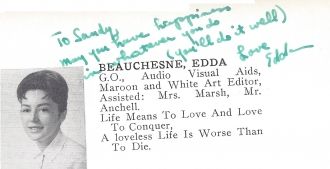 To Sandy,
May you have happiness
in whatever you do
(you'll do it well)
Love
Edda
BEAUCHESNE, EDDA
G.O., Audio Visual Aids,
Maroon and White Art Editor,
Assisted: Mrs. Marsh, Mr.
Anchell.
Life Means To Love And Love
To Conquer,
A loveless Life Is Worse Than
To Die.